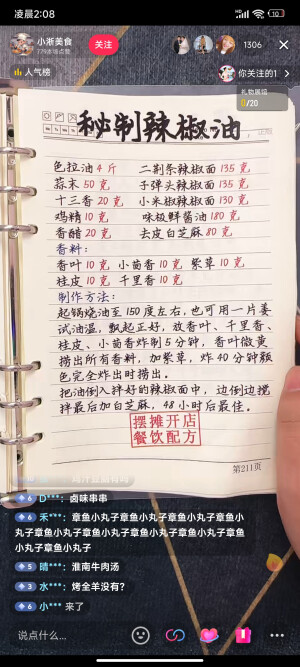 凌晨2:08
10
小淅美食
关注
1306
人气榜
你关注的1
礼物展馆
0/20
秘制辣椒油
色拉油 4 斤 二荆条辣椒面 135 克
蒜末 50 克 子弹头辣椒面 135 克
十三香 20 克 小米椒辣椒面 130 克
鸡精 10 克 味极鲜酱油 180 克
香醋 20 克 去皮白芝麻 80 克
香料:
香叶 10 克 小茴香 10 克 紫草 10 克
桂皮 10 克 千里香 10 克
制作方法:
起锅烧油至 150 度左右,也可用一片姜
试油温,飘起正好,放香叶、千里香、
桂皮、小茴香炸制 5 分钟,香叶微黄
捞出所有香料,加紫草,炸 40 分钟颜
色完全炸出时捞出。
把油倒入拌好的辣椒面中,边倒边搅
拌最后加白芝麻,48 小时后最佳。
摆摊开店
餐饮配方
第211页
6 D***: 卤味串串
6 禾***: 章鱼小丸子章鱼小丸子章鱼小丸子章鱼小
丸子章鱼小丸子章鱼小丸子章鱼小丸子章鱼小丸子章鱼
小丸子章鱼小丸子
5 晴***: 淮南牛肉汤
3 水***: 烤全羊没有?
6 小*** 来了
说点什么...